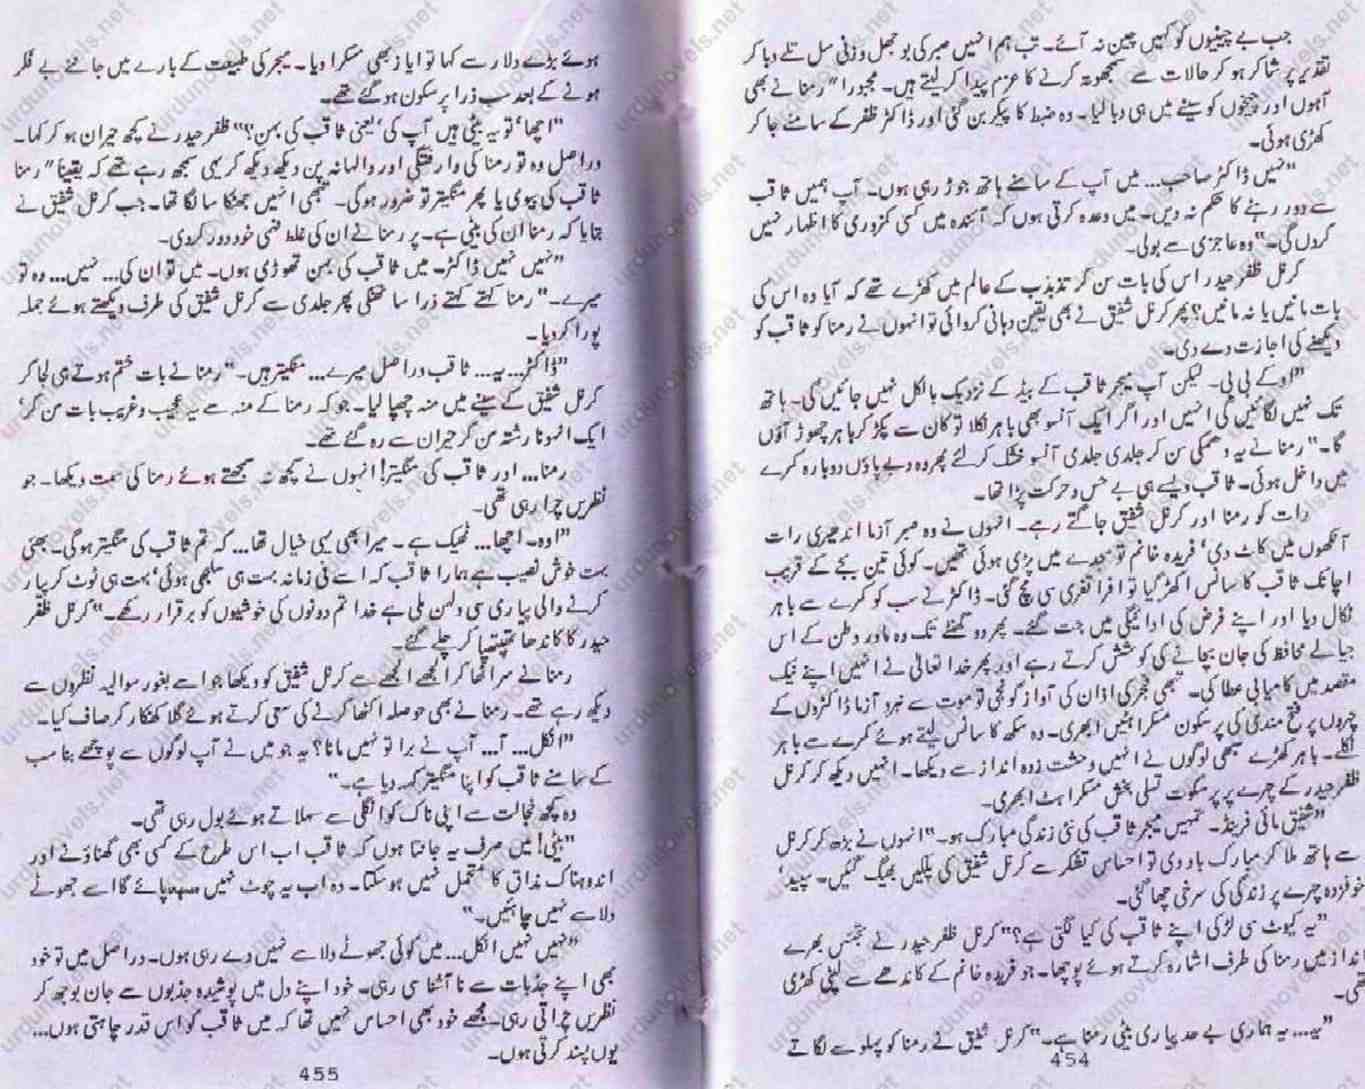 جب بے چینیوں کو کہیں چین نہ آئے۔ تب ہم انہیں صبر کی بوجھل وزنی سل تلے دبا کر
تقدیر پر شاکر ہو کر حالات سے سمجھوتہ کرنے کا عزم پیدا کر لیتے ہیں۔ مجبورا" رمنا نے بھی
آہوں اور چیخوں کو سینے میں ہی دبا لیا۔ وہ ضبط کا پیکر بن گئی اور ڈاکٹر ظفر کے سامنے جا کر
کھڑی ہوئی۔
"نہیں ڈاکٹر صاحب... میں آپ کے سامنے ہاتھ جوڑ رہی ہوں۔ آپ ہمیں ثاقب
سے دور رہنے کا حکم نہ دیں۔ میں وعدہ کرتی ہوں کہ آئندہ میں کسی کمزوری کا اظہار نہیں
کروں گی۔" وہ عاجزی سے بولی۔
کرنل ظفر حیدر اس کی بات سن کر تذبذب کے عالم میں کھڑے تھے کہ آیا وہ اس کی
بات مانیں یا نہ مانیں؟ پھر کرنل شفیق نے بھی یقین دہانی کروائی تو انہوں نے رمنا کو ثاقب کو
دیکھنے کی اجازت دے دی۔
"اوکے بی بی۔ لیکن آپ میجر ثاقب کے بیڈ کے نزدیک بالکل نہیں جائیں گی۔ ہاتھ
تک نہیں لگائیں گی انہیں اور اگر ایک آنسو بھی باہر نکلا تو کان سے پکڑ کر باہر چھوڑ آؤں
گا۔" رمنا نے یہ دھمکی سن کر جلدی جلدی آنسو خشک کر لئے پھر وہ دبے پاؤں دوبارہ کمرے
میں داخل ہوئی۔ ثاقب ویسے ہی بے حس و حرکت پڑا تھا۔
رات کو رمنا اور کرنل شفیق جاگتے رہے۔ انہوں نے وہ صبر آزما اندھیری رات
آنکھوں میں کاٹ دی، فریدہ خانم تو سجدے میں پڑی ہوئی تھیں۔ کوئی تین بجے کے قریب
اچانک ثاقب کا سانس اکھڑ گیا تو افراتفری سی مچ گئی۔ ڈاکٹر نے سب کو کمرے سے باہر
نکال دیا اور اپنے فرض کی ادائیگی میں جت گئے۔ پھر دو گھنٹے تک وہ مادر وطن کے اس
جیالے محافظ کی جان بچانے کی کوشش کرتے رہے اور پھر خدا تعالیٰ نے انہیں اپنے نیک
مقصد میں کامیابی عطا کی۔ تبھی فجر کی اذان کی آواز گونجی تو موت سے نبرد آزما ڈاکٹروں کے
چہروں پر فتح مندی کی پر سکون مسکراہٹیں ابھری۔ وہ سکھ کا سانس لیتے ہوئے کمرے سے باہر
نکلے۔ باہر کھڑے سبھی لوگوں نے انہیں وحشت زدہ انداز سے دیکھا۔ انہیں دیکھ کر کرنل
ظفر حیدر کے چہرے پر پر سکوت تسلی بخش مسکراہٹ ابھری۔
"شفیق مائی فرینڈ۔ تمہیں میجر ثاقب کی نئی زندگی مبارک ہو۔" انہوں نے بڑھ کر کرنل
سے ہاتھ ملا کر مبارک باد دی تو احساس تشکر سے کرنل شفیق کی پلکیں بھیگ گئیں۔ سپید،
خوفزدہ چہرے پر زندگی کی سرخی چھا گئی۔
"یہ کیوٹ سی لڑکی اپنے ثاقب کی کیا لگتی ہے؟" کرنل ظفر حیدر نے تجسس بھرے
انداز میں رمنا کی طرف اشارہ کرتے ہوئے پوچھا۔ جو فریدہ خانم کے کاندھے سے لپٹی کھڑی
تھی۔
"یہ... یہ ہماری بے حد پیاری بیٹی رمنا ہے۔" کرنل شفیق نے رمنا کو پہلو سے لگاتے
454
ہوئے بڑے دلار سے کہا تو ایاز بھی مسکرا دیا۔ میجر کی طبیعت کے بارے میں جاننے بے فکر
ہونے کے بعد سب ذرا پر سکون ہو گئے تھے۔
"اچھا، تو یہ بیٹی ہیں آپ کی، یعنی ثاقب کی بہن؟" ظفر حیدر نے کچھ حیران ہو کر کہا۔
دراصل وہ تو رمنا کی وارفتگی اور والہانہ پن دیکھ دیکھ کر یہی سمجھ رہے تھے کہ یقیناً" رمنا
ثاقب کی بیوی یا پھر منگیتر تو ضرور ہو گی۔ تبھی انہیں جھٹکا سا لگا تھا۔ جب کرنل شفیق نے
بتایا کہ رمنا ان کی بیٹی ہے۔ پر رمنا نے ان کی غلط فہمی خود دور کر دی۔
"نہیں نہیں ڈاکٹر۔ میں ثاقب کی بہن تھوڑی ہوں۔ میں تو ان کی... نہیں... وہ تو
میرے۔" رمنا کہتے کہتے ذرا سا ٹھٹکی پھر جلدی سے کرنل شفیق کی طرف دیکھتے ہوئے جملہ
پورا کر دیا۔
"ڈاکٹر... یہ... ثاقب دراصل میرے... منگیتر ہیں۔" رمنا نے بات ختم ہوتے ہی لجا کر
کرنل شفیق کے سینے میں منہ چھپا لیا۔ جو کہ رمنا کے منہ سے یہ عجیب و غریب بات سن کر،
ایک انہونا رشتہ سن کر حیران سے رہ گئے تھے۔
رمنا... اور ثاقب کی منگیتر! انہوں نے کچھ نہ سمجھتے ہوئے رمنا کی سمت دیکھا۔ جو
نظریں چرا رہی تھی۔
"اوہ۔ اچھا... ٹھیک ہے۔ میرا بھی یہی خیال تھا... کہ تم ثاقب کی منگیتر ہو گی۔ بھئی
بہت خوش نصیب ہے ہمارا ثاقب کہ اسے فی زمانہ بہت ہی سلجھی ہوئی، بہت ہی ٹوٹ کر پیار
کرنے والی پیاری سی دلہن ملی ہے خدا تم دونوں کی خوشیوں کو برقرار رکھے۔" کرنل ظفر
حیدر کا کاندھا تھپتھپا کر چلے گئے۔
رمنا نے سر اٹھا کر الجھے الجھے سے کرنل شفیق کو دیکھا جو اسے بغور سوالیہ نظروں سے
دیکھ رہے تھے۔ رمنا نے بھی حوصلہ اکٹھا کرنے کی سعی کرتے ہوئے گلا کھنکار کر صاف کیا۔
"انکل... آ... آپ نے برا تو نہیں مانا؟ یہ جو میں نے آپ لوگوں سے پوچھے بنا سب
کے سامنے ثاقب کو اپنا منگیتر کہہ دیا ہے۔"
وہ کچھ خجالت سے اپنی ناک کو انگلی سے سہلاتے ہوئے بول رہی تھی۔
"بیٹی! میں صرف یہ جانتا ہوں کہ ثاقب اب اس طرح کے کسی بھی گھناؤنے اور
اندوہناک مذاق کا متحمل نہیں ہو سکتا۔ وہ اب یہ چوٹ نہیں سہہ پائے گا اسے جھوٹے
دلاسے نہیں چاہئیں۔"
"نہیں نہیں انکل... میں کوئی جھوٹے دلاسے نہیں دے رہی ہوں۔ دراصل میں تو خود
بھی اپنے جذبات سے نا آشنا سی رہی۔ خود اپنے دل میں پوشیدہ جذبوں سے جان بوجھ کر
نظریں چراتی رہی۔ مجھے خود بھی احساس نہیں تھا کہ میں ثاقب کو اس قدر چاہتی ہوں...
یوں پسند کرتی ہوں۔
455
urdunovels.net